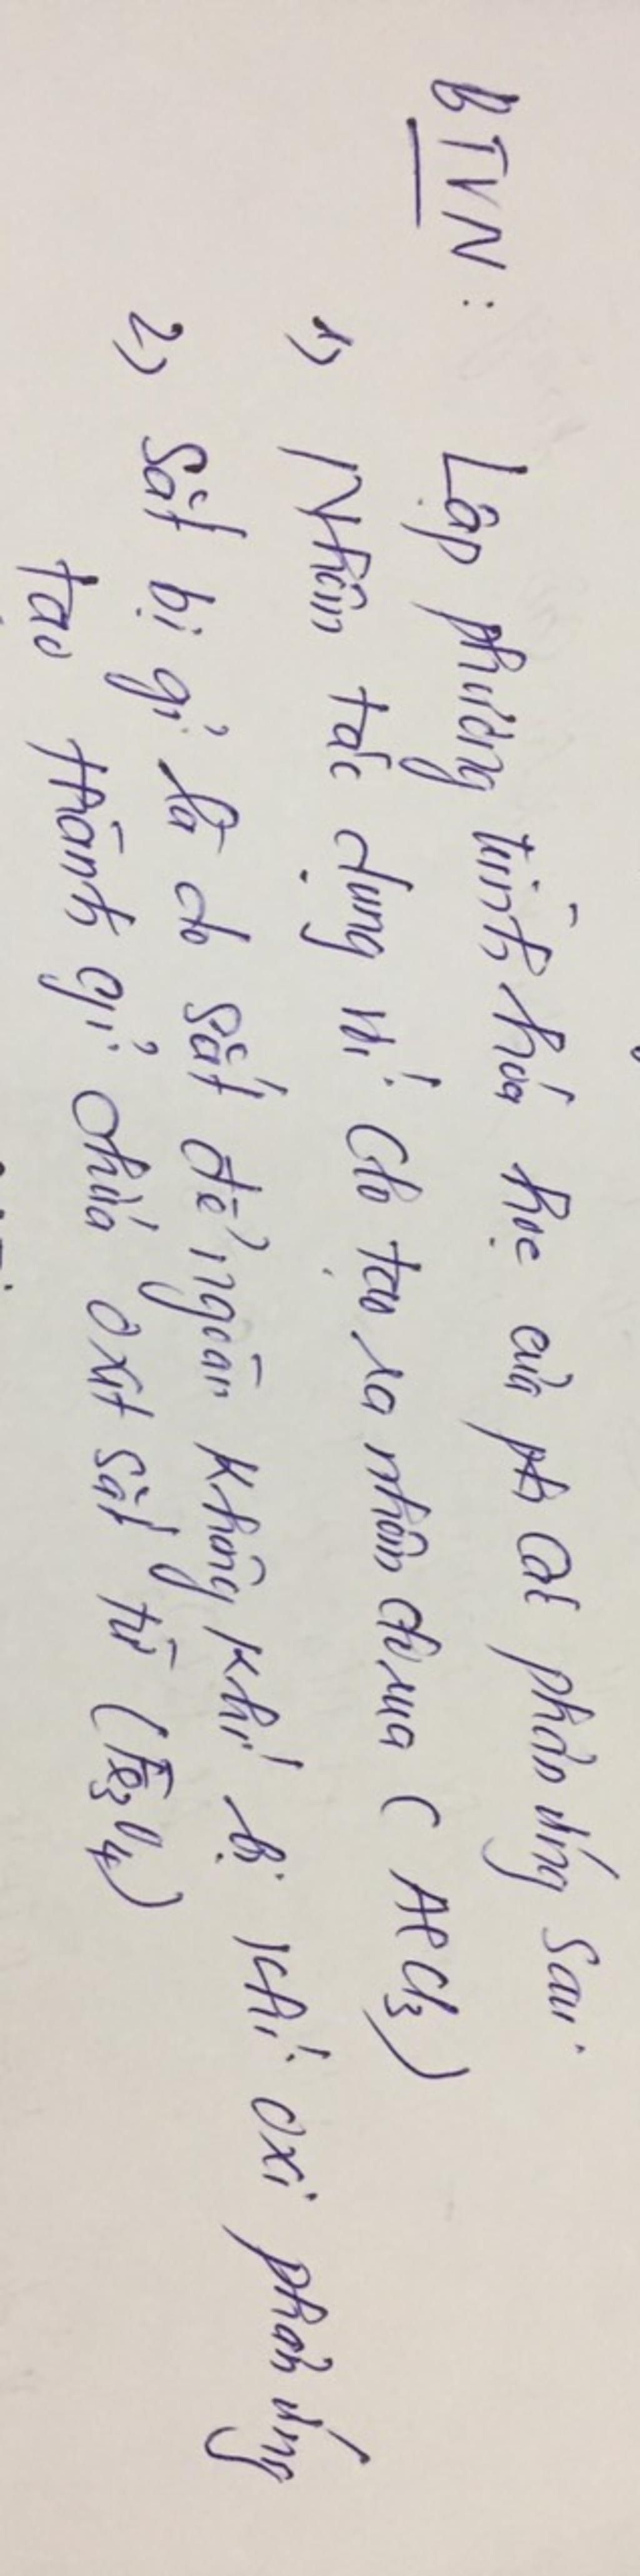 BTVN: Lập phương trình hóa học của các phản ứng sau:
1) Nhôm tác dụng với Clo tạo ra nhôm clorua (AlCl3)
2) Sắt bị gỉ là do sắt để ngoài không khí bị khí oxi phản ứng
tạo thành gỉ chứa oxit sắt từ (Fe3O4)